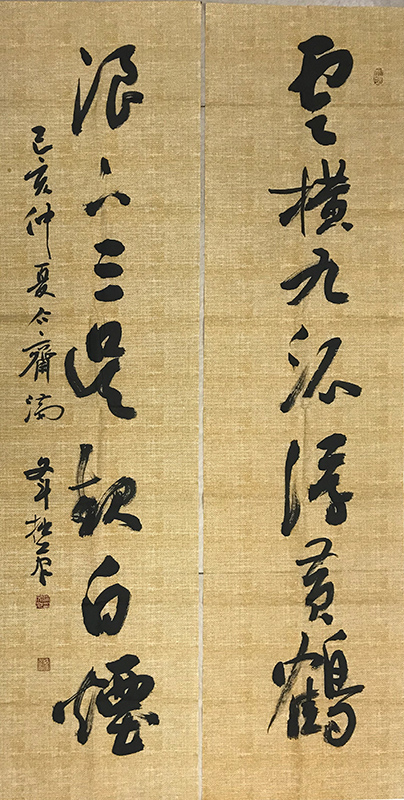 雲橫九派浮黃鶴
浪下三吳起白煙
己亥仲夏齋